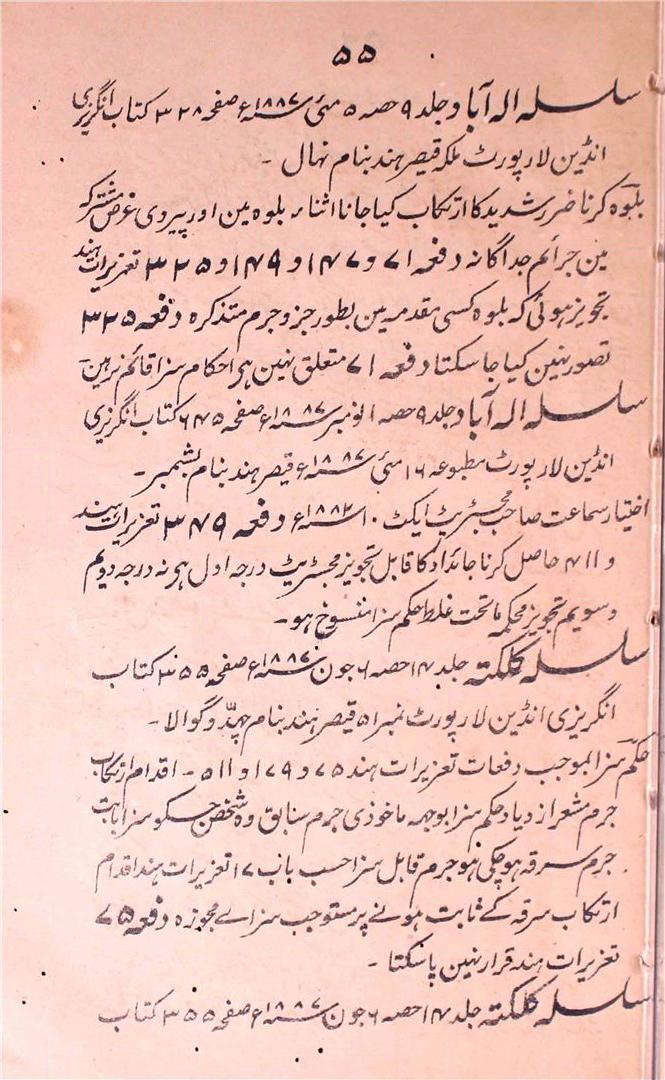 ۵۵
سلسلہ الہ آباد جلد ۹ حصہ ۵ مئی ۱۸۸۷ء صفحہ ۳۲۸ کتاب انگریزی
انڈین لارپورٹ ملکہ قیصر ہند بنام نہال ۔
بلوہ کرنا ضرر شدید کا ارتکاب کیا جانا اثناء بلوہ مین اور پیروی غرض مشترکہ
مین جرائم جداگانہ دفعہ ۷۱ و ۱۴۷ و ۱۴۹ و ۳۲۵ تعزیرات ہند
تجویز ہوئی کہ بلوہ کسی مقدمہ مین بطور جزو جرم متذکرہ دفعہ ۳۲۵
تصور نہین کیا جا سکتا دفعہ ۷۱ متعلق نہین ہی احکام سزا قائم رہین
سلسلہ الہ آباد جلد ۹ حصہ ۱۱ نومبر ۱۸۸۷ء صفحہ ۶۴۵ کتاب انگریزی
انڈین لارپورٹ مطبوعہ ۱۶ مئی ۱۸۸۷ء قیصر ہند بنام بشمبر ۔
اختیار سماعت صاحب مجسٹریٹ ایکٹ ۱۰ ۱۸۸۲ء دفعہ ۳۷۹ تعزیرات ہند
و ۴۱۱ حاصل کرنا جائداد کا قابل تجویز مجسٹریٹ درجہ اول ہی نہ درجہ دویم
و سویم تجویز محکمہ ماتحت غلط حکم سزا منسوخ ہو ۔
سلسلہ کلکتہ جلد ۱۴ حصہ ۶ جون ۱۸۸۷ء صفحہ ۳۵۵ کتاب
انگریزی انڈین لارپورٹ نمبر ۵۱ قیصر ہند بنام گوالا ۔
حکم سزا بموجب دفعات تعزیرات ہند ۷۵ و ۳۷۹ و ۵۱۱ ۔ اقدام ارتکاب
جرم مشعر ازدیاد حکم سزا بوجہ ماخوذی جرم سابق وہ شخص جسکو سزا بابت
جرم سرقہ ہو چکی ہو جرم قابل سزا حسب باب ۱۷ تعزیرات ہند اقدام
ارتکاب سرقہ کے ثابت ہونے پر مستوجب سزاے مجوزہ دفعہ ۷۵
تعزیرات ہند قرار نہین پا سکتا ۔
سلسلہ کلکتہ جلد ۱۴ حصہ ۶ جون ۱۸۸۷ء صفحہ ۳۵۵ کتاب